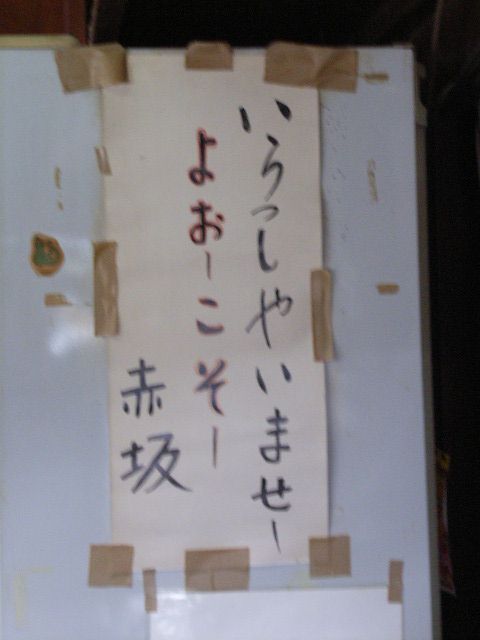 いらっしやいませー
よおーこそー
赤坂